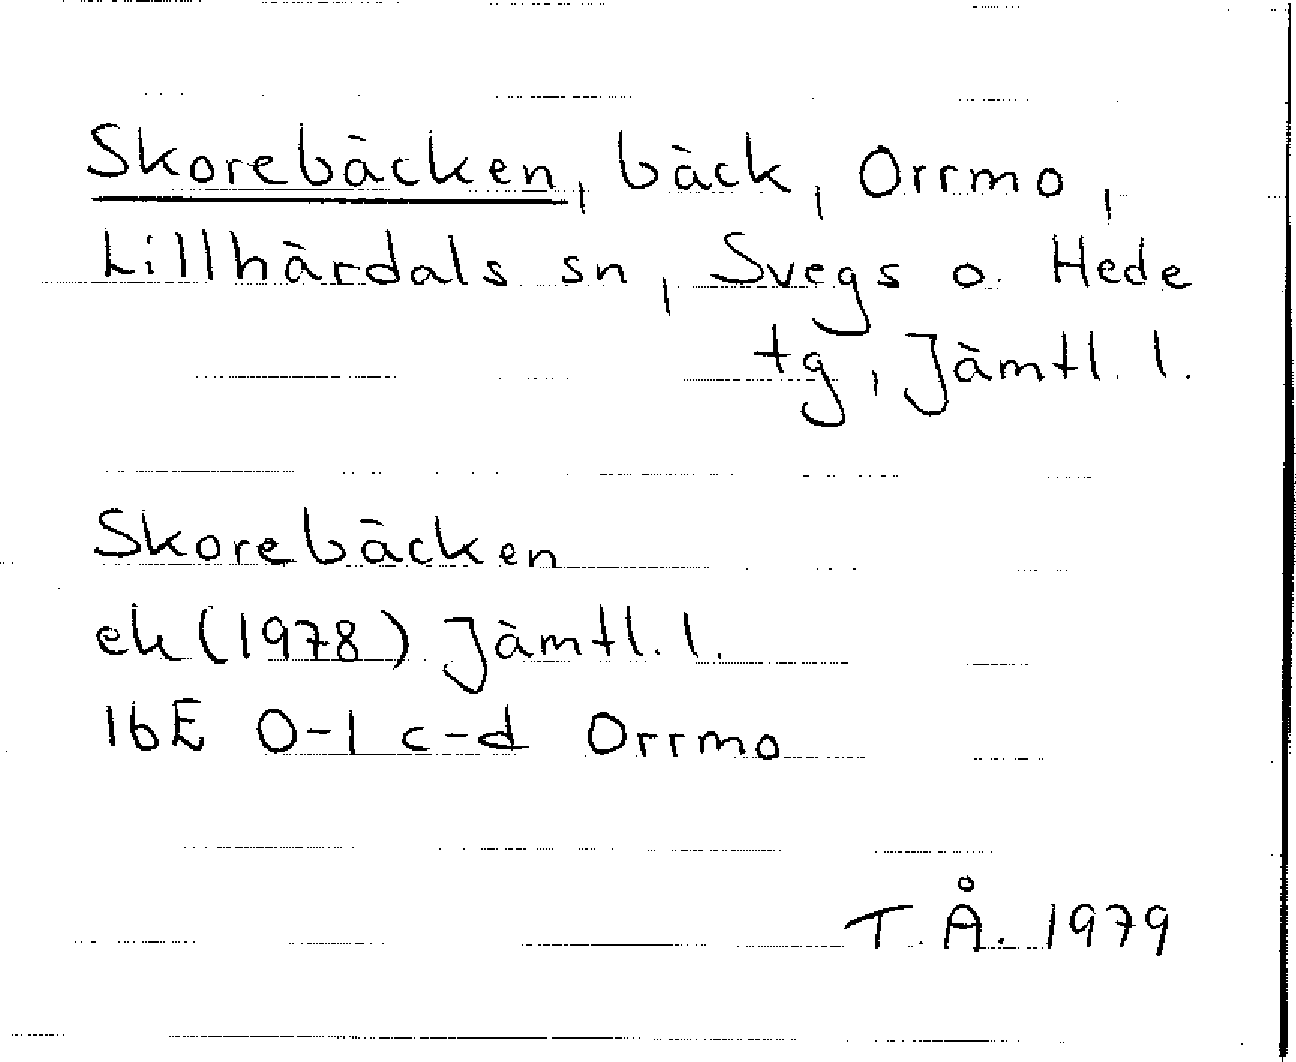 Skorebäcken, bäck, Orrmo,
Lillhärdals sn, Svegs o. Hede
tg, Jämtl. l.
Skorebäcken
ek (1978) Jämtl. l.
16E 0-1 c-d Orrmo
T. Å. 1979